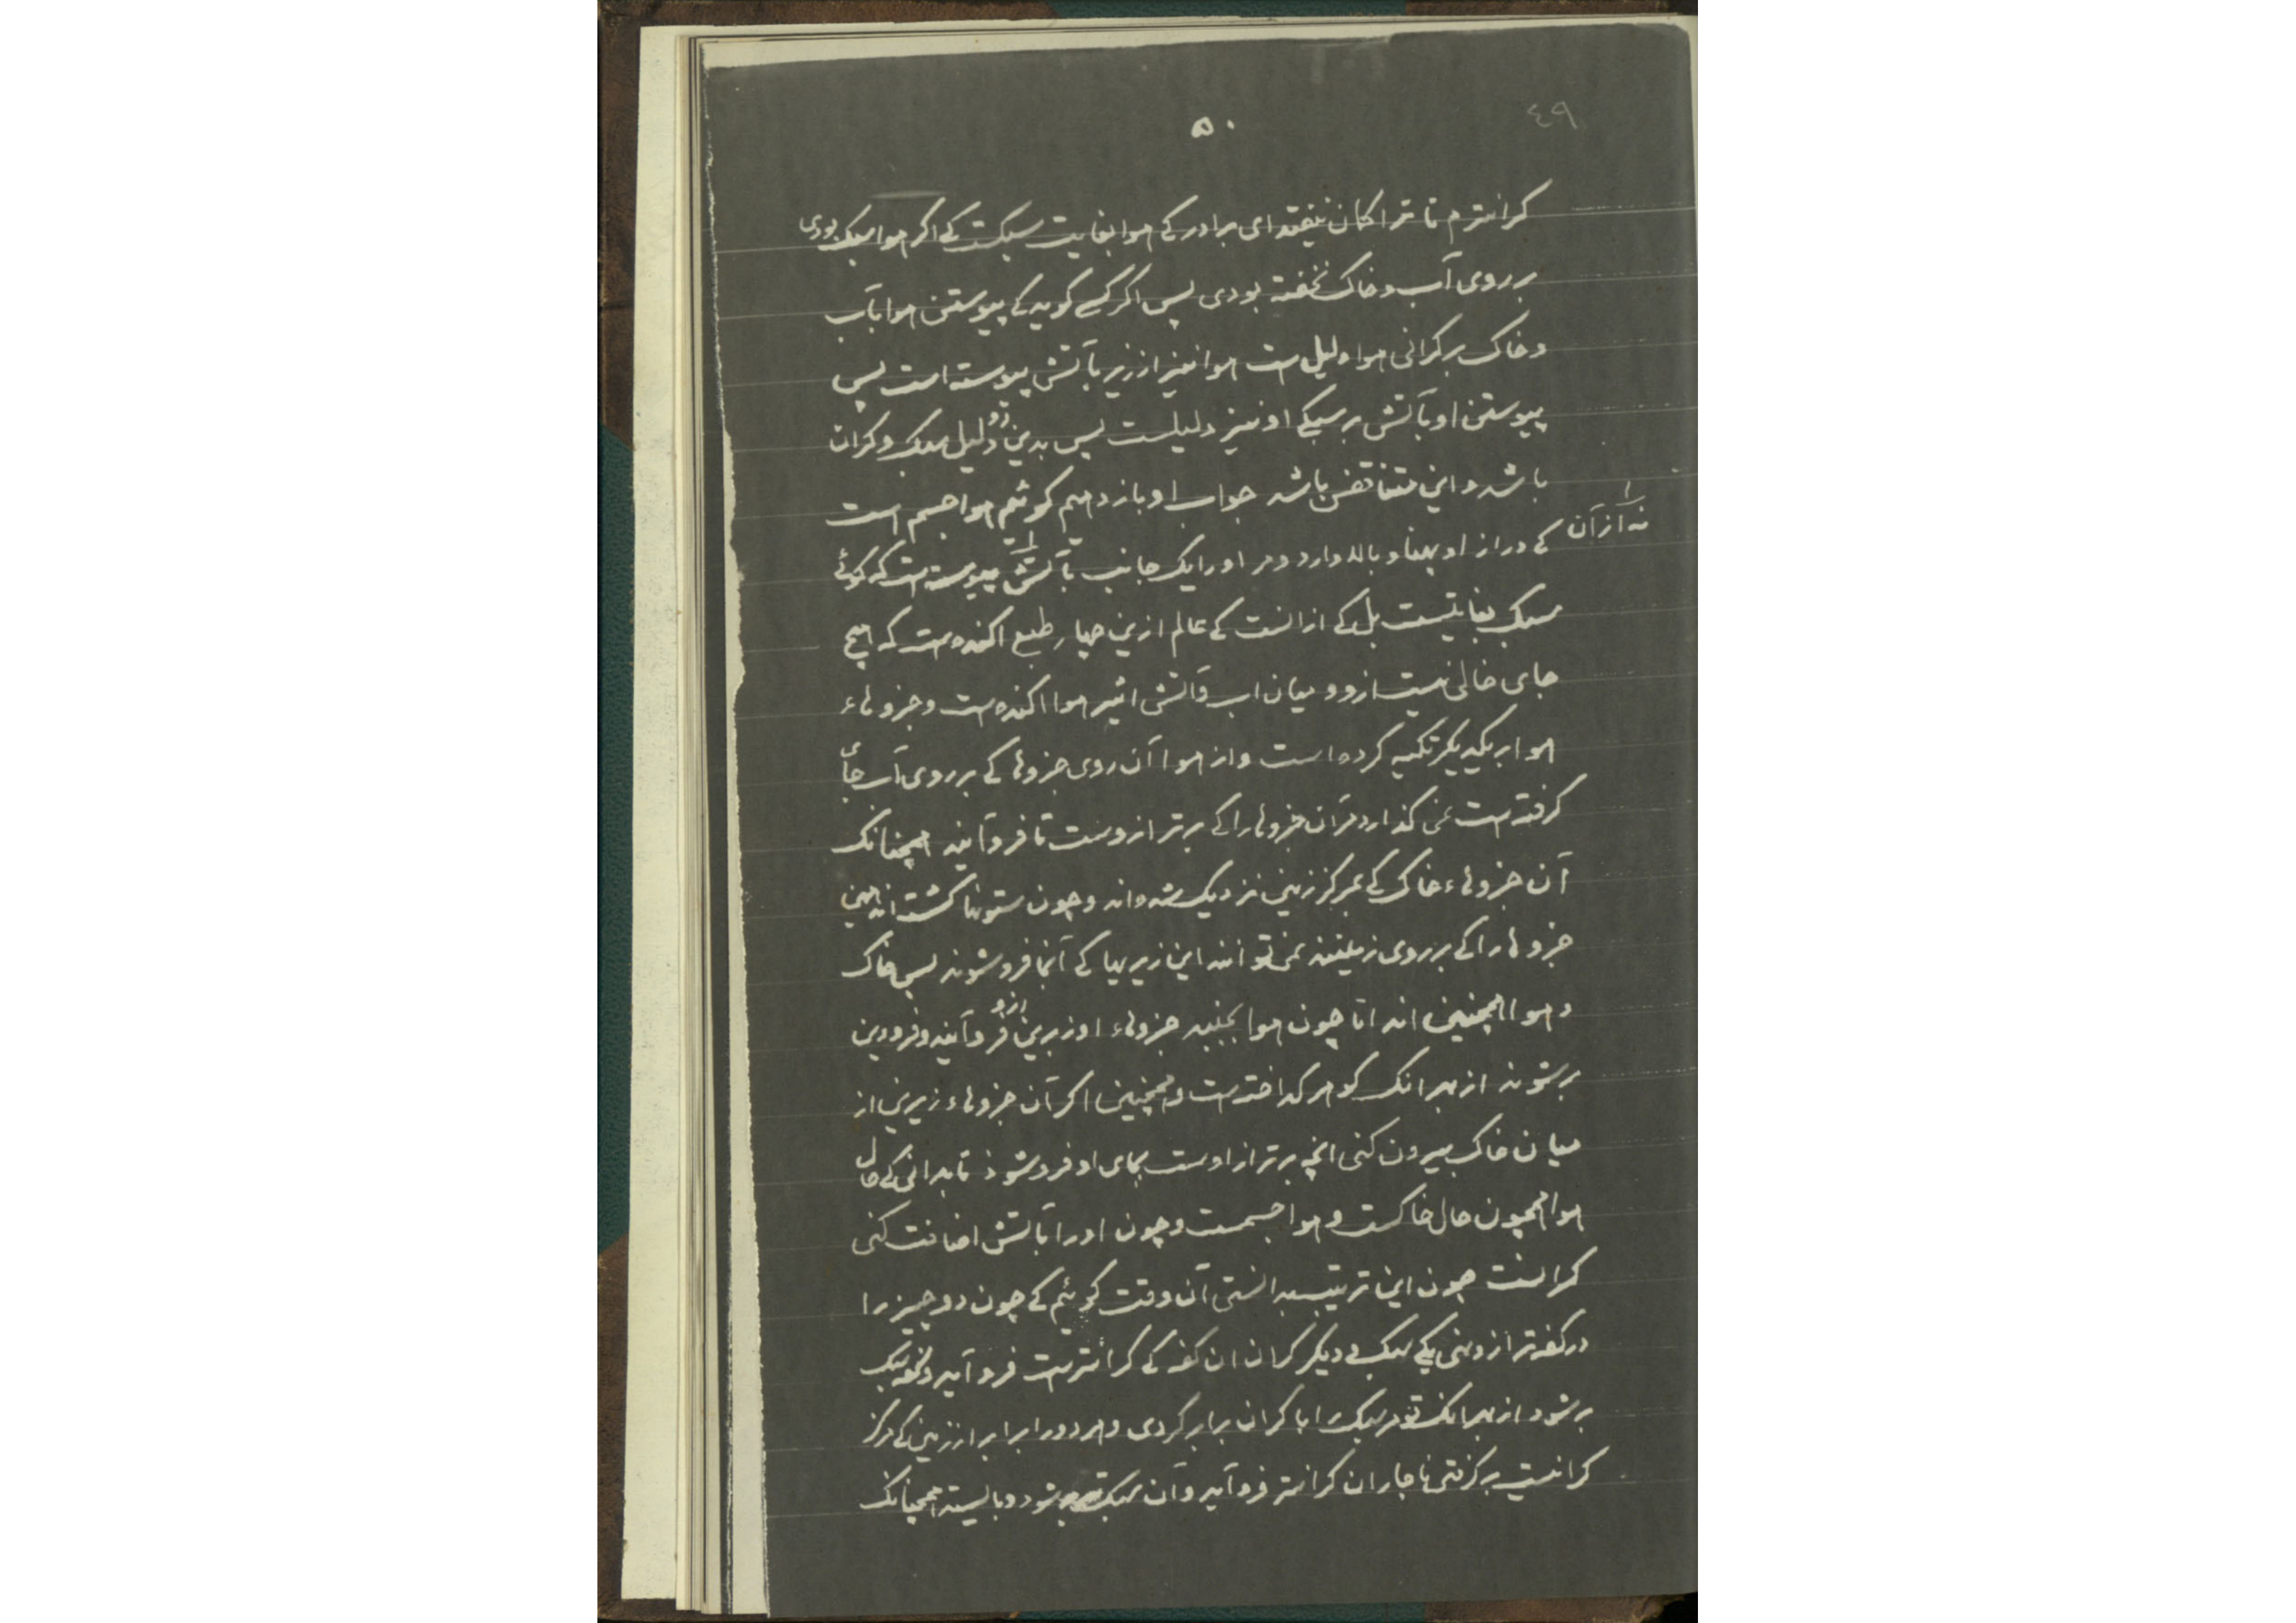 ۵۰
٤٩
کرانترم تا ترا کمان نیفتد ای برادر کے هوا بغایت سبکست کے اکر هوا سبک بودی
بر روی آب و خاک نخفته بودی پس اکر کسے کوید کے پیوستن هوا بآب
و خاک بر کرانی هوا دلیل است هوا نیز از زیر بآتش پیوسته است پس
پیوستن او بآتش بر سبکے او نیز دلیلست پس بدین دو دلیل سبک و کران
باشد و این متناقض باشد جواب او باز دهیم کوئیم هوا جسم است
کے دراز او پهنا و بالا دارد و مر او را یک جانب بآتش پیوسته است که کوئے
نه از آن
سبک بغایتست بل کے از انست کے عالم ازین چهار طبع اکنده است که هیچ
جای خالی نیست ازو و میان اب و آتش اثیر هوا اکنده است و جزوهاء
هوا بر یکدیکر تکیه کرده است و از هوا آن روی جزوها کے بر روی آب جای
کرفته است نمی کذارد مر آن جزوها را کے برتر ازوست تا فرو آیند همچنانک
آن جزوهاء خاک کے بمرکز زمین نزدیک شده اند و چون ستونها کشته اند همی
جزوها را کے بر روی زمینند نمی توانند این زیریها کے آنجا فرو شوند پس خاک
و هوا همچنین اند اما چون هوا بجنبد جزوهاء او زبرین ازو فرو آیند و فرودین
بر شوند از بهر انک کوهر کداخته است و همچنین اکر آن جزوهاء زیرین از
میان خاک بیرون کنی انچه برتر از اوست بجای او فرو شوذ تا بدانی کے حال
هوا همچون حال خاکست و هوا جسمست و چون او را بآتش اضافت کنی
کرانست چون این ترتیب بدانستی آن وقت کوئیم کے چون دو چیز را
در کفه ترازو نهی یکے سبک و دیکر کران ان کفه کے کرانترست فرو آید و کفه سبک
بر شود از بهر انک تو مر سبک را با کران برابر کردی و هر دو را برابر از زمین کے مرکز
کرانیست بر کرفتی ناچار ان کرانتر فرو آید و آن سبکتر بر شود و بالیسته همچنانک